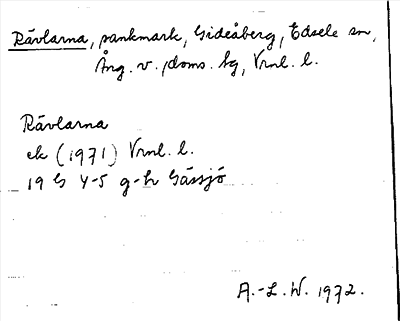 Rävlarna, sankmark, Gideåberg, Edsele sn,
Ång. v. doms. hg, Vrnl. l.
Rävlarna
ek (1971) Vrnl. l.
19 G 4-5 g-h Gässjö
A.-L. W. 1972.